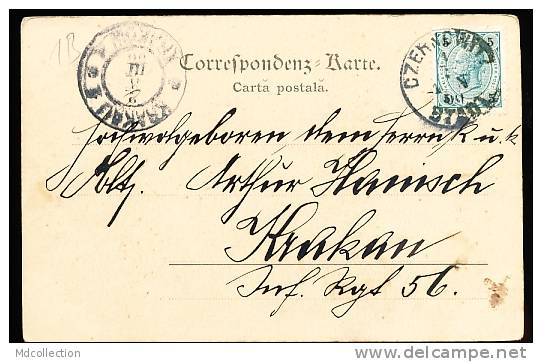 1B
Correspondenz-Karte.
Cartă postală.
CZERNOWITZ
STADT
KRAKAU
Hochwolgeboren dem Herrn k u. k
Oblt. Arthur Hanisch
Krakau
Inf. Rgt 56.
Mdcollection
www.delcampe.net